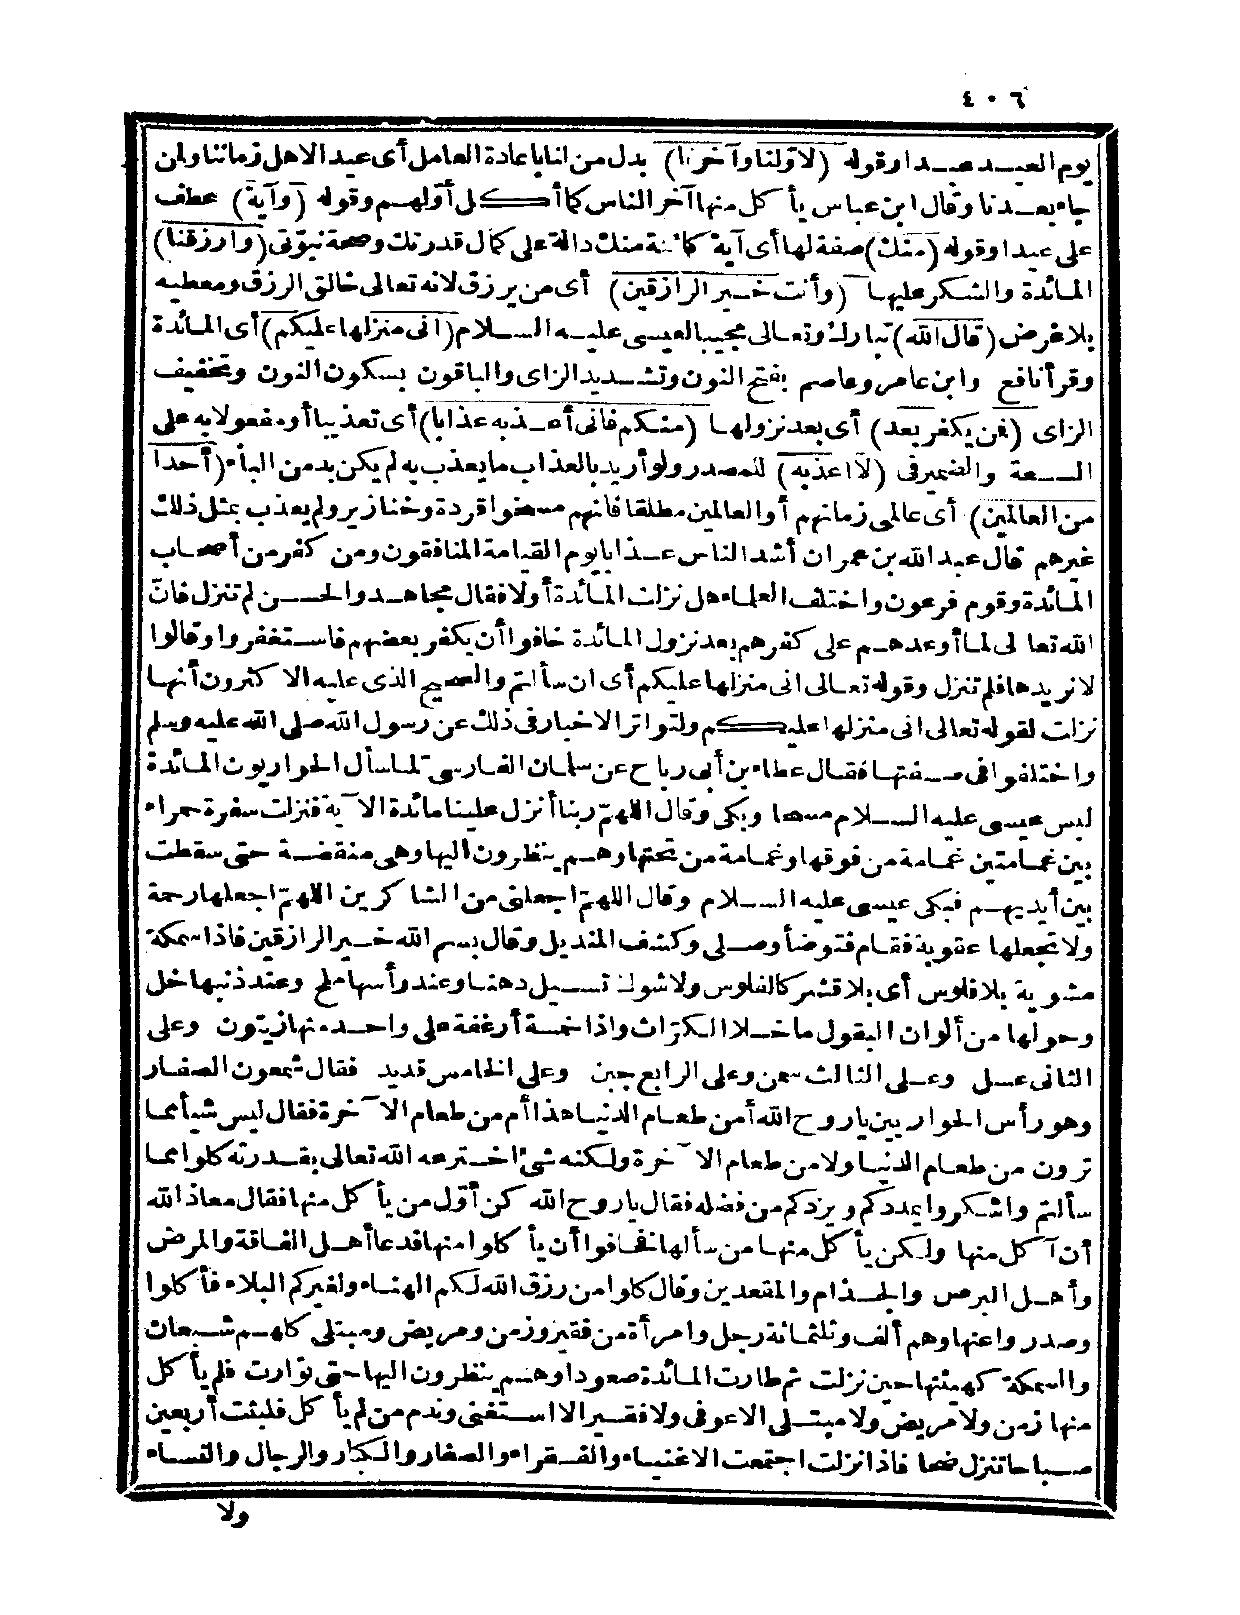 ٤٠٦
يوم العيد عيدا وقوله (لاوّلنا وآخرنا) بدل من لنا باعادة العامل أى عيد الاهل زماننا ولمن
جاء بعدنا وقال ابن عباس يأكل منها آخر الناس كما أكل أولهم وقوله (وآية) عطف
على عيدا وقوله (منك) صفة لها أى آية كائنة منك دالة على كمال قدرتك وصحة نبوّتى (وارزقنا)
المائدة والشكر عليها (وأنت خير الرازقين) أى من يرزق لانه تعالى خالق الرزق ومعطيه
بلا غرض (قال الله) تبارك وتعالى مجيبا لعيسى عليه السلام (انى منزلها عليكم) أى المائدة
وقرأ نافع وابن عامر وعاصم بفتح النون وتشديد الزاى والباقون بسكون النون وتخفيف
الزاى (فمن يكفر بعد) أى بعد نزولها (منكم فانى أعذبه عذابا) أى تعذيبا أو مفعولا به على
السعة والضمير فى (لا أعذبه) للمصدر ولو أريد بالعذاب ما يعذب به لم يكن بد من الباء (أحدا
من العالمين) أى عالمى زمانهم أو العالمين مطلقا فانهم مسخوا قردة وخنازير ولم يعذب بمثل ذلك
غيرهم قال عبد الله بن عمران أشد الناس عذابا يوم القيامة المنافقون ومن كفر من أصحاب
المائدة وقوم فرعون واختلف العلماء هل نزلت المائدة أولا فقال مجاهد والحسن لم تنزل فانّ
الله تعالى لما أوعدهم على كفرهم بعد نزول المائدة خافوا أن يكفر بعضهم فاستغفروا وقالوا
لا نريدها فلم تنزل وقوله تعالى انى منزلها عليكم أى ان سألتم والصحيح الذى عليه الاكثرون أنها
نزلت لقوله تعالى انى منزلها عليكم ولتواتر الاخبار فى ذلك عن رسول الله صلى الله عليه وسلم
واختلفوا فى صفتها فقال عطاء بن أبى رباح عن سلمان الفارسى لما سأل الحواريون المائدة
لبس عيسى عليه السلام مسحا وبكى وقال اللهمّ ربنا أنزل علينا مائدة الآية فنزلت سفرة حمراء
بين غمامتين غمامة من فوقها وغمامة من تحتها وهم ينظرون اليها وهى منقضة حتى سقطت
بين أيديهم فبكى عيسى عليه السلام وقال اللهمّ اجعلنى من الشاكرين اللهمّ اجعلها رحمة
ولا تجعلها عقوبة فقام فتوضأ وصلى وكشف المنديل وقال بسم الله خير الرازقين فاذا سمكة
مشوية بلا فلوس أى بلا قشر كالفلوس ولا شوك تسيل دهنا وعند رأسها ملح وعند ذنبها خل
وحولها من ألوان البقول ما خلا الكرّاث واذا خمسة أرغفة على واحد منها زيتون وعلى
الثانى عسل وعلى الثالث سمن وعلى الرابع جبن وعلى الخامس قديد فقال شمعون الصفار
وهو رأس الحواريين يا روح الله أمن طعام الدنيا هذا أم من طعام الآخرة فقال ليس شيأ مما
ترون من طعام الدنيا ولا من طعام الآخرة ولكنه شئ اخترعه الله تعالى بقدرته كلوا مما
سألتم واشكروا يمددكم ويزدكم من فضله فقال يا روح الله كن أوّل من يأكل منها فقال معاذ الله
أن آكل منها ولكن يأكل منها من سألها فخافوا أن يأكلوا منها فدعا أهل الفاقة والمرض
وأهل البرص والجذام والمقعدين وقال كلوا من رزق الله لكم الهناء ولغيركم البلاء فأكلوا
وصدروا عنها وهم ألف وثلثمائة رجل وامرأة من فقير وزمن ومريض ومبتلى كلهم شبعان
والسمكة كهيئتها حين نزلت ثم طارت المائدة صعودا وهم ينظرون اليها حتى توارت فلم يأكل
منها زمن ولا مريض ولا مبتلى الا عوفى ولا فقير الا استغنى وندم من لم يأكل فلبثت أربعين
صباحا تنزل ضحا فاذا نزلت اجتمعت الاغنياء والفقراء والصغار والكبار والرجال والنساء
ولا